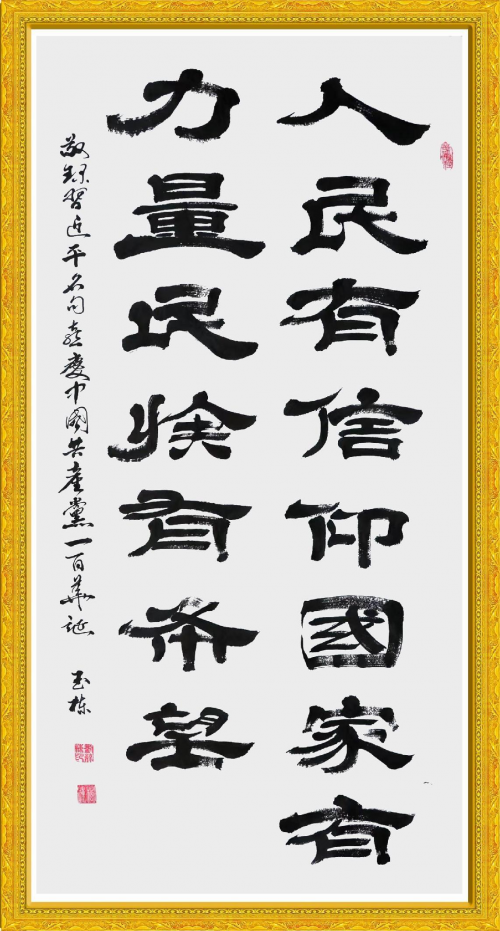 人民有信仰國家有
力量民族有希望
敬録習近平名句喜慶中國共產黨一百華誕 玉栋